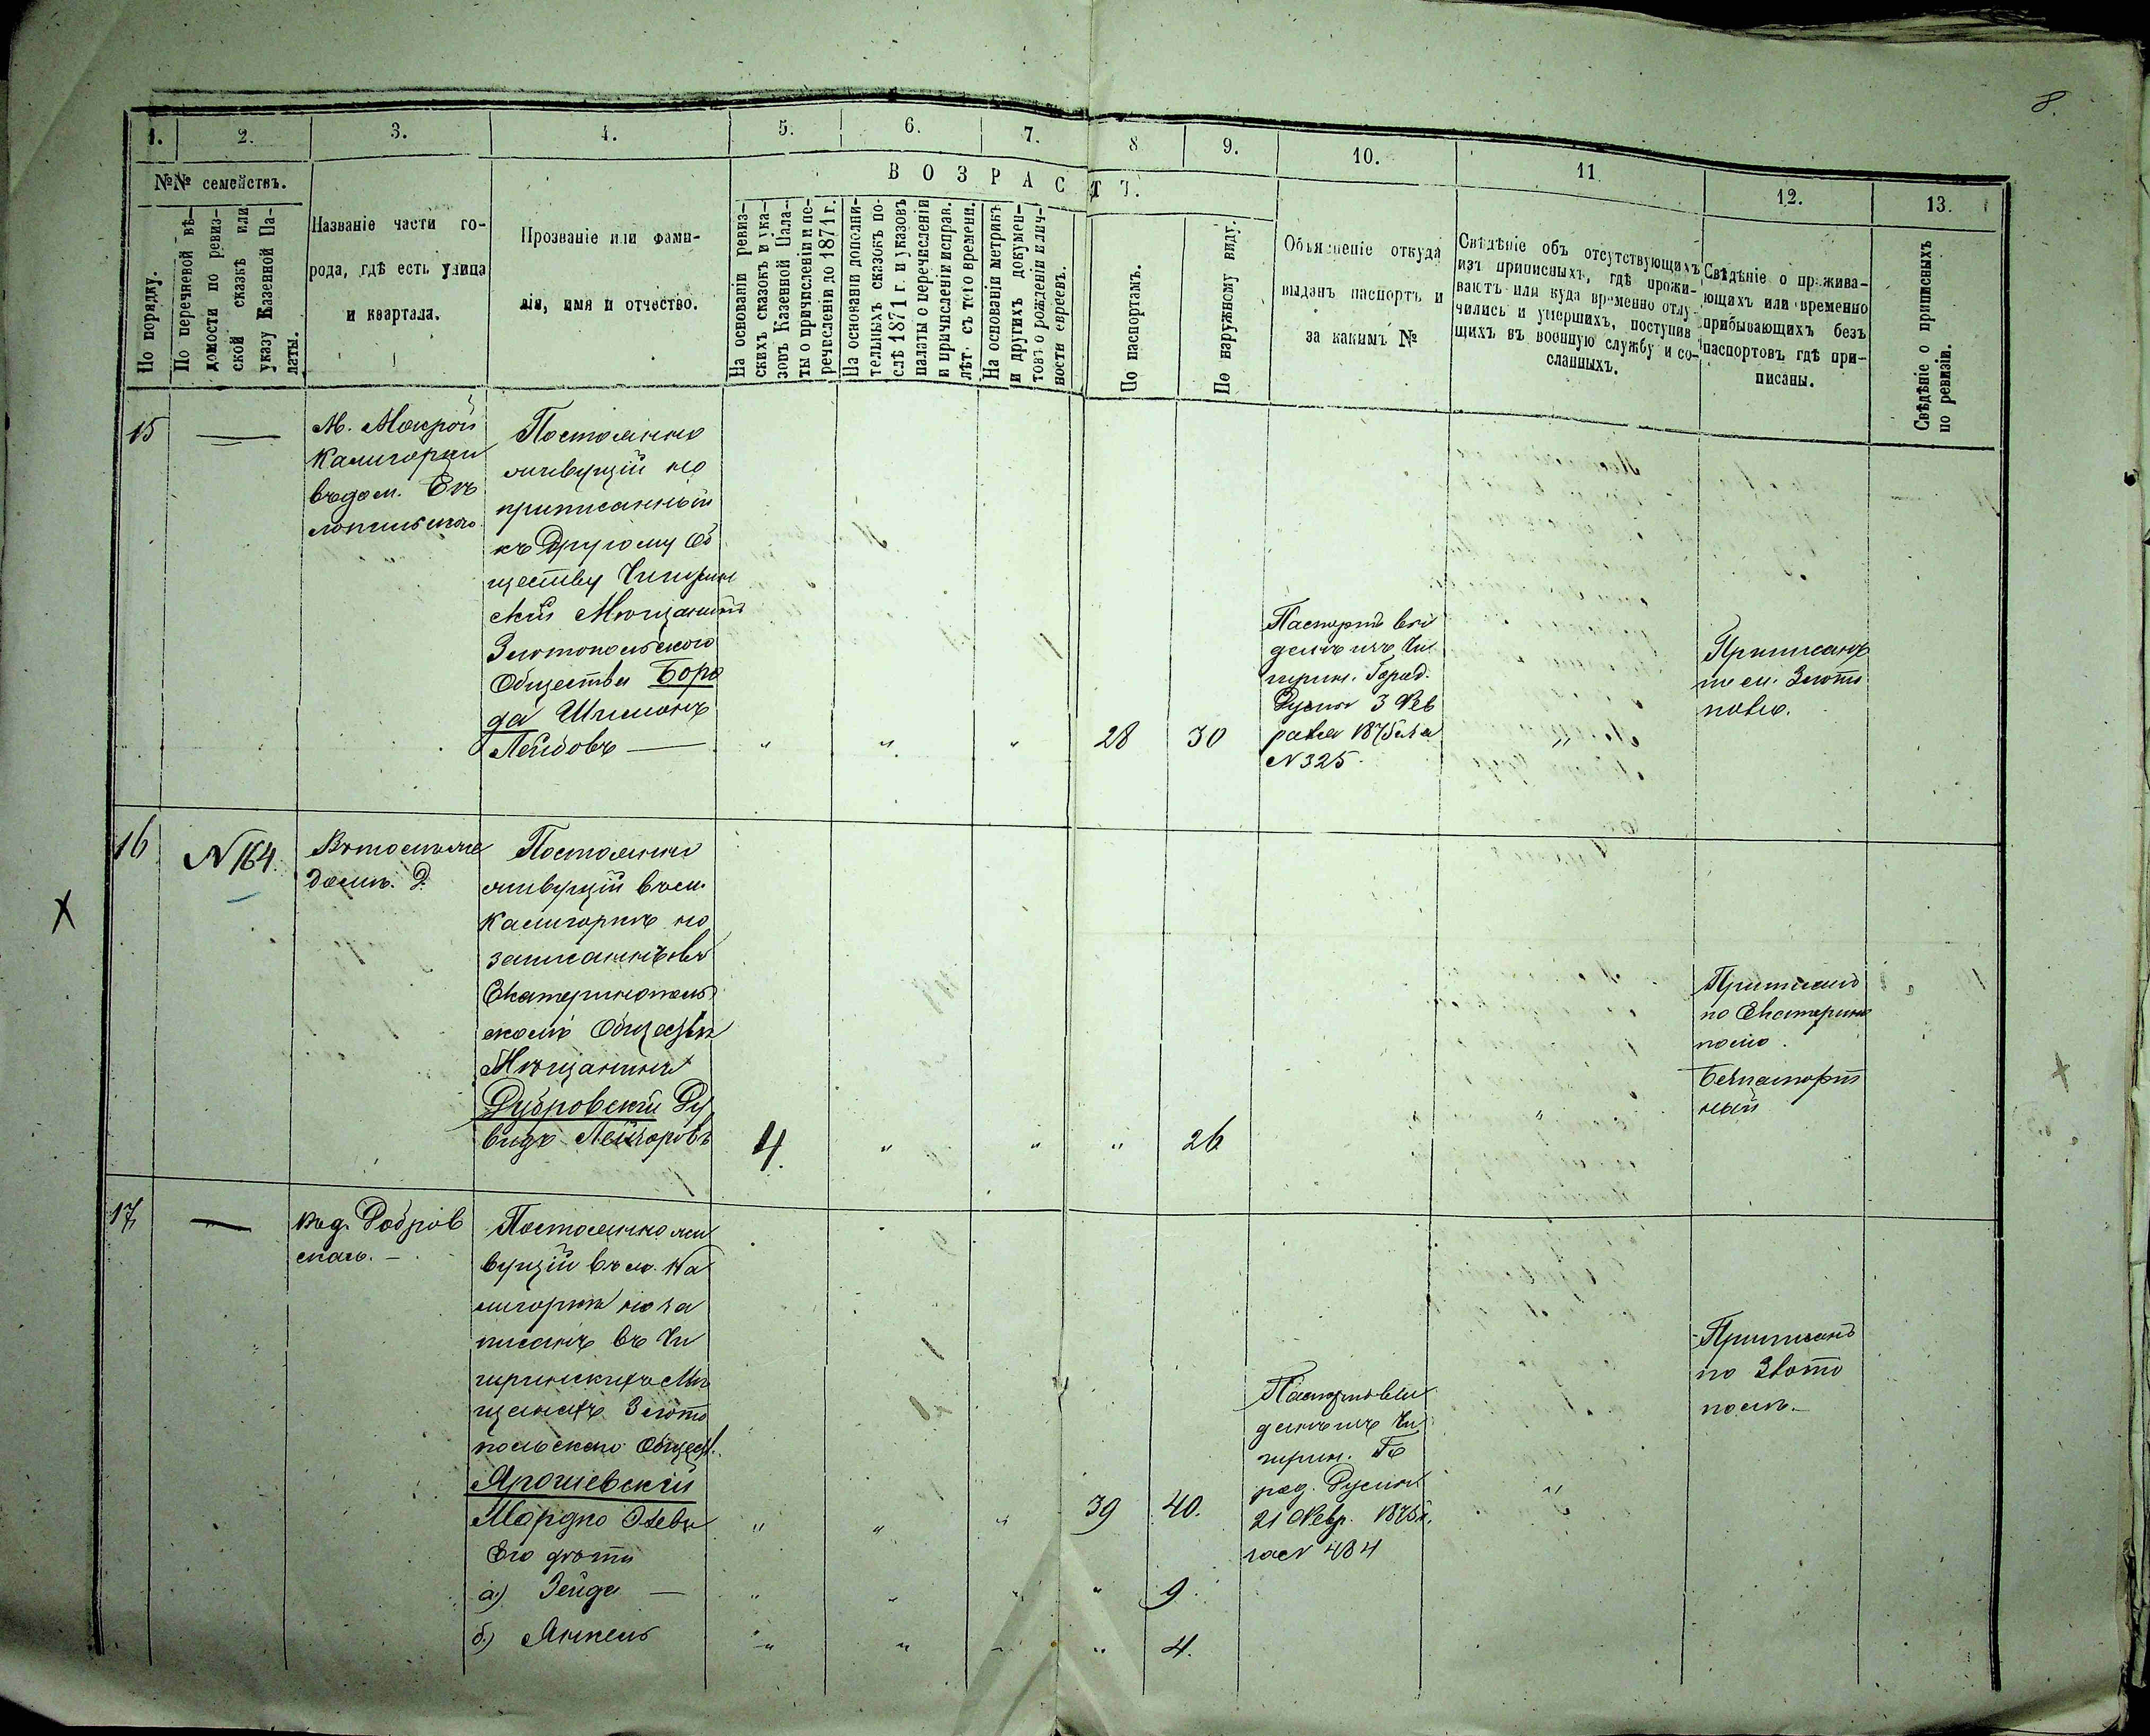 8.
1. 2. 3. 4. 5. 6. 7. 8 9. 10. 11. 12. 13.
№№ семействъ.
ВОЗРАСТЪ.
По порядку.
По перечневой вѣ-
домости по ревиз-
ской сказкѣ или
указу Казенной Па-
латы.
Названіе части го-
рода, гдѣ есть улица
и квартала.
Прозваніе или фами-
лія, имя и отчество.
На основаніи ревиз-
скихъ сказокъ и ука-
зовъ Казенной Пала-
ты о причисленіи и пе-
речисленіи до 1871 г.
На основаніи дополни-
тельныхъ сказокъ по-
слѣ 1871 г. и указовъ
палаты с перечисленіи
и причисленіи исправ.
лѣт. съ того времени.
На основаніи метрикъ
и другихъ докумен-
товъ о рожденіи и лич-
ности евреевъ.
По паспортамъ.
По наружному виду.
Объясненіе откуда
выданъ паспортъ и
за какимъ №
Свѣдѣніе объ отсутствующихъ
изъ приписныхъ, гдѣ прожи-
ваютъ или куда временно отлу-
чились и умершихъ, поступив
щихъ въ военную службу и со-
сланныхъ.
Свѣдѣніе о прожива-
ющихъ или временно
прибывающихъ безъ
паспортовъ гдѣ при-
писаны.
Свѣдѣніе о приписныхъ
по ревизіи.
15
М. Мокрой
Калигорки
вѣдом.
Постоянно
живущій но
приписанный
къ Другому Об
ществу Чигирин
скій Мѣщанинъ
Златопольского
Общества Боро
да Шимонъ
Лейбовъ — " " " 28 30
Паспортъ вы
данъ изъ Чи
гирин. Город.
Думы 3 Фев
раля 1875 за
N 325.
"
Приписанъ
по м. Злато
полю.
16 N 164.
Въ томъ же
домѣ. Д.
Постоянно
живущій въ м.
Калигоркѣ но
записанъ въ
Екатеринополь
скомъ Обществѣ
Мѣщанинъ
Дубровскій Ду
видъ Лейзоровъ 4. " " " 26
"
Приписанъ
по Екатерино
полю.
Безпаспорт
ный
17
въ д. Добров
скаго. —
Постоянно жи
вущій въ м. Ка
лигоркѣ но за
писанъ въ Чи
гиринскихъ Мѣ
щанахъ Злато
польского Общест.
Ярошевскій
Мордко " " " 39 40.
Паспортъ вы
данъ изъ Чи
гирин. Го
род. Думы
21 Февр. 1875 г.
за N 484
"
Приписанъ
по Злато
полю. —
Его дѣти
а) Зейда — " " " " 9.
б.) Янкель " " " " 4.